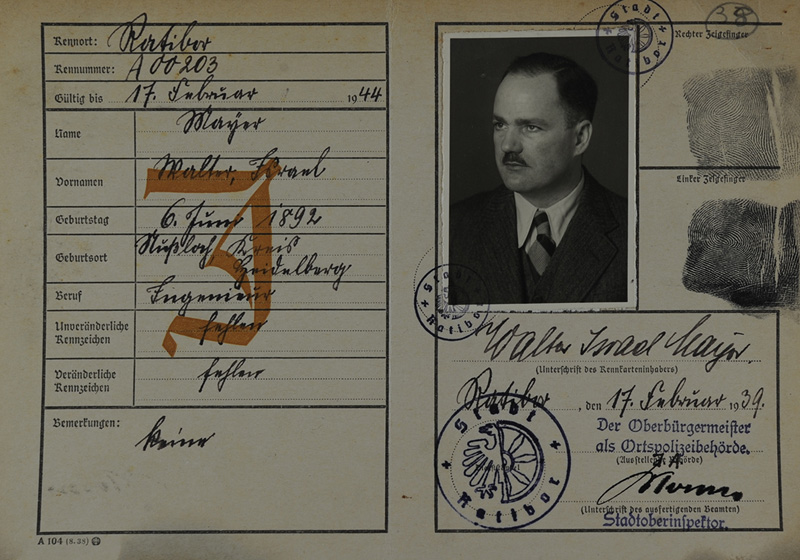 Kennort: Ratibor
Kennummer: A 00203
Gültig bis 17. Februar 1944
Name Mayer
Vornamen Walter, Israel
Geburtstag 6. Juni 1892
Geburtsort Nußloch, Kreis
Heidelberg
Beruf Ingenieur
Unveränderliche
Kennzeichen fehlen
Veränderliche
Kennzeichen fehlen
Bemerkungen: keine
J
A 104 (8.38)
38
Stadt Ratibor
Rechter Zeigefinger
Linker Zeigefinger
Stadt Ratibor
Walter Israel Mayer.
(Unterschrift des Kennkarteninhabers)
Ratibor, den 17. Februar 1939.
Der Oberbürgermeister
als Ortspolizeibehörde.
(Ausstellende Behörde)
Stadt Ratibor
(Unterschrift des ausfertigenden Beamten)
Stadtoberinspektor.